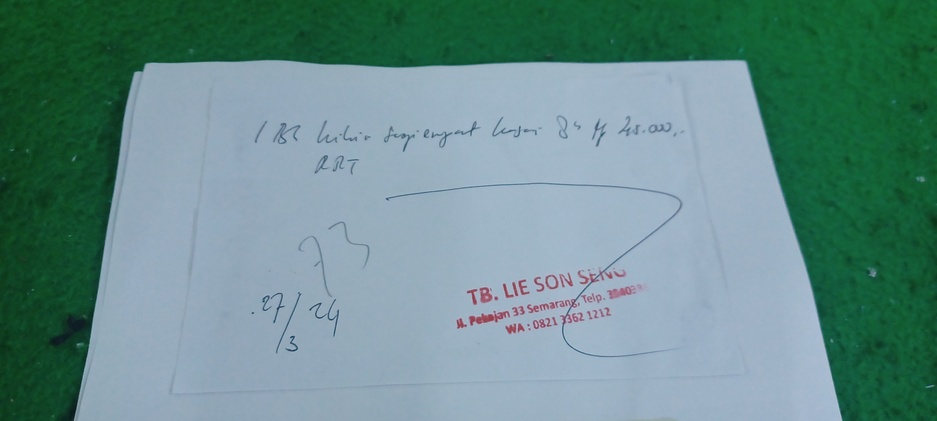 1 Bh kikir segi empat kasar 8" Rp 45.000,-
RRT
73
27/3 24
TB. LIE SON SENG
Jl. Pekojan 33 Semarang, Telp.
WA : 0821 3362 1212